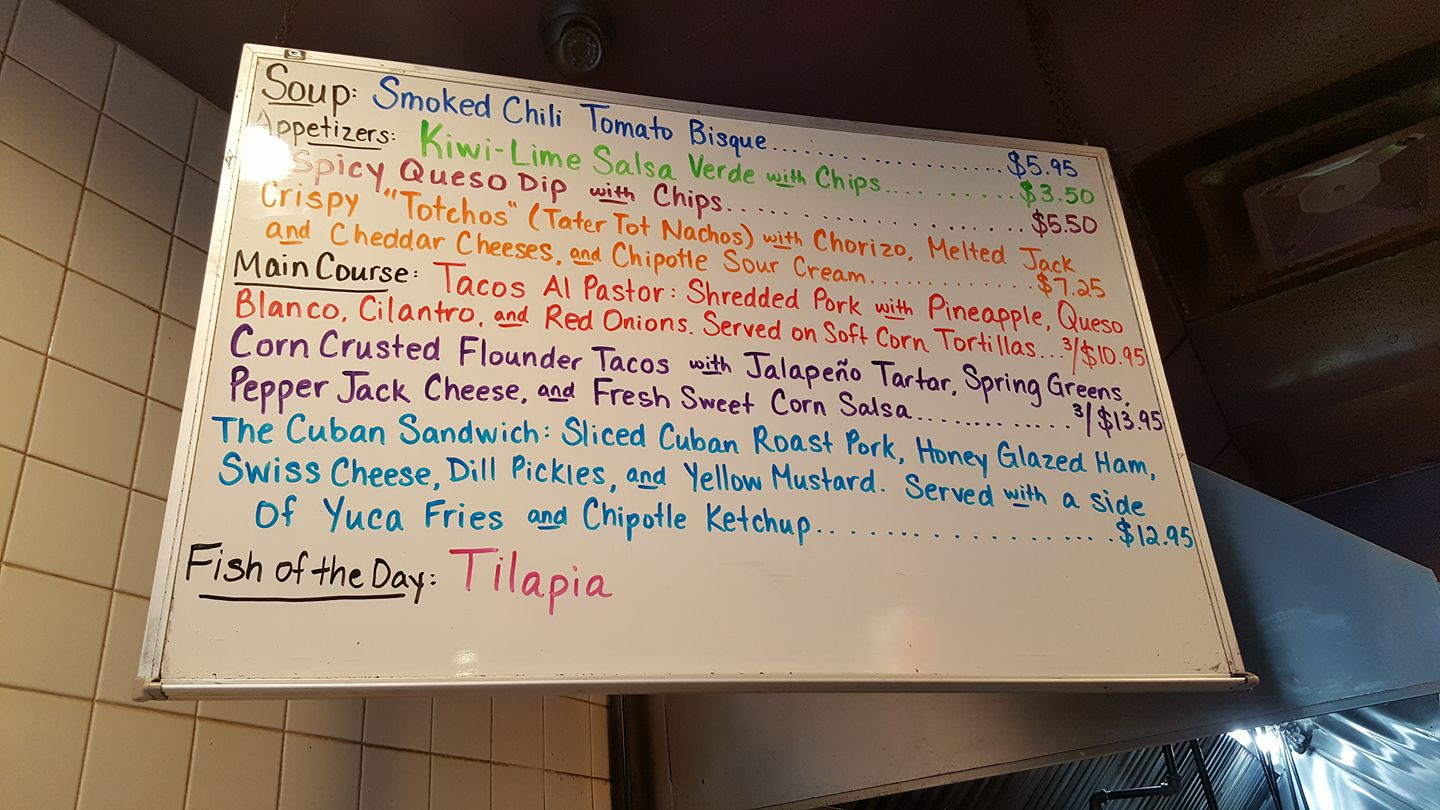 Soup: Smoked Chili Tomato Bisque................$5.95
Appetizers: Kiwi-Lime Salsa Verde with Chips...........$3.50
Spicy Queso Dip with Chips....................$5.50
Crispy "Totchos" (Tater Tot Nachos) with Chorizo, Melted Jack
and Cheddar Cheeses, and Chipotle Sour Cream..............$7.25
Main Course: Tacos Al Pastor: Shredded Pork with Pineapple, Queso
Blanco, Cilantro, and Red Onions. Served on Soft Corn Tortillas...3/$10.95
Corn Crusted Flounder Tacos with Jalapeño Tartar, Spring Greens,
Pepper Jack Cheese, and Fresh Sweet Corn Salsa..............3/$13.95
The Cuban Sandwich: Sliced Cuban Roast Pork, Honey Glazed Ham,
Swiss Cheese, Dill Pickles, and Yellow Mustard. Served with a side
Of Yuca Fries and Chipotle Ketchup....................$12.95
Fish of the Day: Tilapia